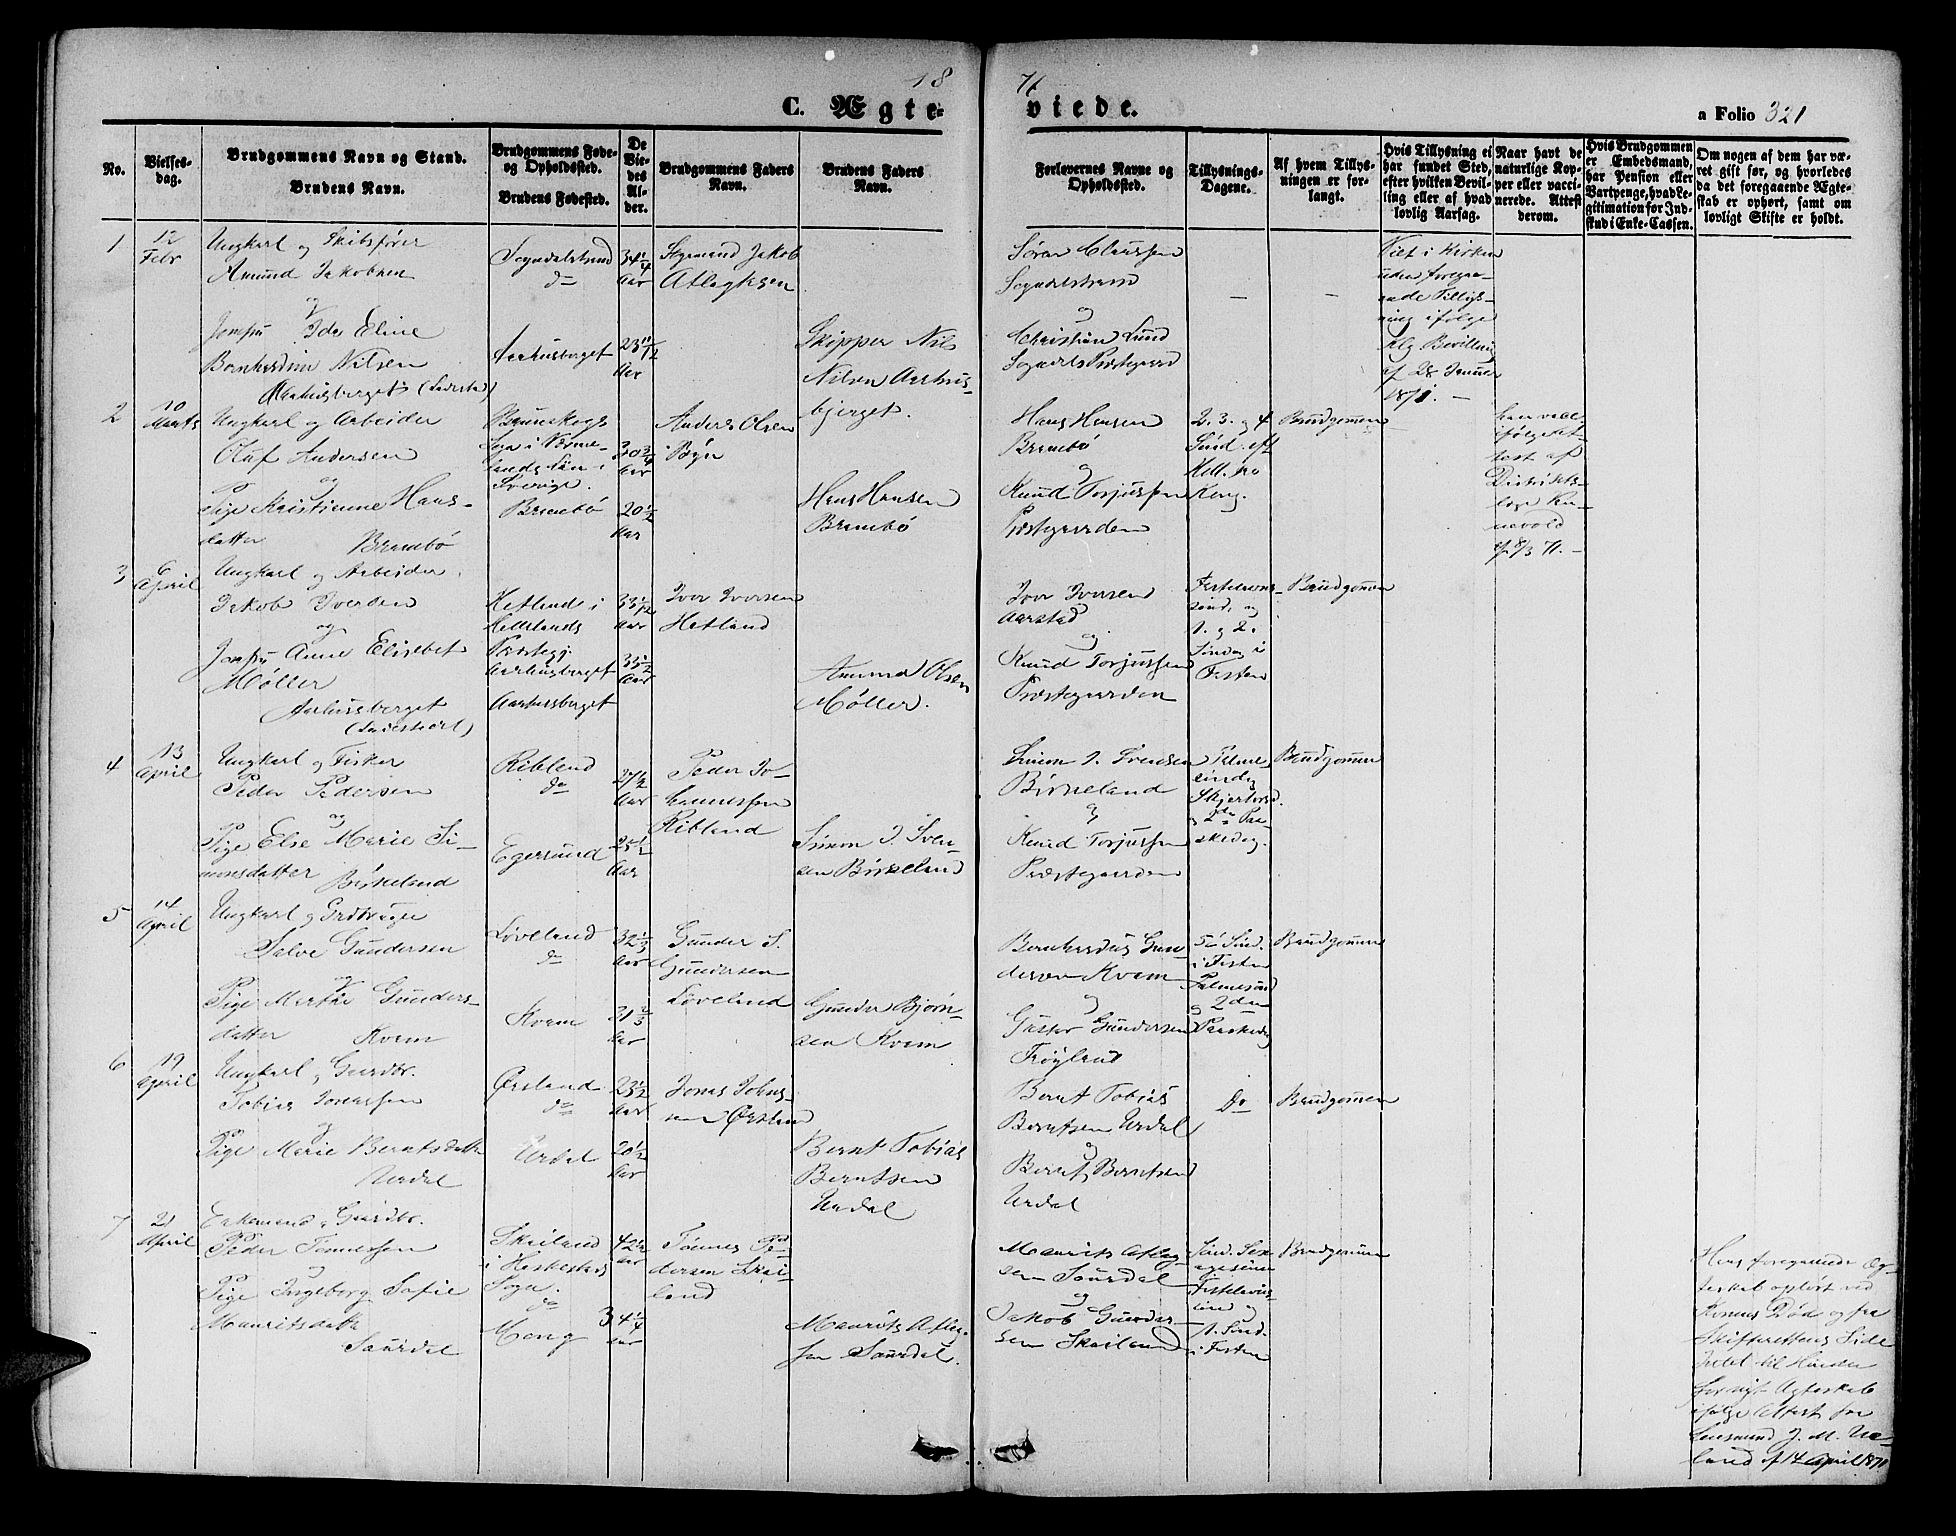 1871
C. Ægteviede.
a Folio 321
No.
Vielsesdag.
Brudgommens Navn og Stand.
Brudens Navn.
Brudgommens Føde- og Opholdsted.
Brudens Fødested.
De Viedes Alder.
Brudgommens Faders Navn.
Brudens Faders Navn.
Forlovernes Navne og Opholdsted.
Tillysnings-Dagene.
Af hvem Tillysningen er forlangt.
Hvis Tillysning ei har fundet Sted, efter hvilken Bevilling eller af hvad lovlig Aarsag.
Naar havt de naturlige Kopper eller vaccinerede. Attest derom.
Hvis Brudgommen er Embedsmand, har Pension eller Vartpenge, hvad Legitimation for Indskud i Enke-Cassen.
Om nogen af dem har været gift før, og hvorledes da det foregaaende Ægteskab er ophørt, samt om lovligt Skifte er holdt.
1
12 Febr
Ungkarl og Skibsfører
Amund Jakobsen
og
Jomfru Ida Eline
Bernhardine Nilsen
Sogndalstrand
do
Aarhusberget
34 1/4 Aar
23 11/12 Aar
Jakob
Atlagksen
Skipper Nils
Nilsen Aarhus-
bjerget.
Søren Claussen
Sogndalstrand
og
Christian Lund
Sogndals Præstegaard
–
–
Viet i Kirken
uden foregaa-
ende Tillys-
ning ifølge
Kglg Bevilling
af 28 Januar
1871. –
2
10 Marts
Ungkarl og Arbeider
Oluf Andersen
og
Pige Kristianne Hans-
datter Brambø
Brunskogs
Sogn i Værme-
lands Län i
Sverige.
Brambø
30 3/4 Aar
20 1/2 Aar
Anders Olsen
i Bøgn
Hans Hansen
Brambø
Hans Hansen
Brambø
og
Knud Torjussen
Præstegaarden
2. 3. og 4
Sønd. eft
Hell. tre
Kong.
Brudgommen
han vacc.
ifølge At-
test af
Distrikts-
læge
af 8/3 71. –
3
6 April
Ungkarl og Arbeider
Jakob Iversen
og
Jomfru Anne Elisebet
Møller
Aarhusberget
Hetland i
Hellelands
Præstegj.
Aarhusberget
Aarhusberget
33 1/12 Aar
35 1/2 Aar
Iver Iversen
Hetland
Amund Olsen
Møller.
Iver Iversen
Aarstad
og
Knud Torjussen
Præstegaarden
Fastelavns-
sønd. og
1. og 2.
Søndag i
Fasten
Brudgommen
4
13 April
Ungkarl og Fisker
Peder Pedersen
og
Pige Else Marie Si-
monsdatter Birkeland
Ribland
do
Egersund
27 1/2 Aar
25 1/2 Aar
Peder Jo-
hannessen
Ribland
Simon J. Sven-
sen Birkeland
Simon J. Svendsen
Birkeland
og
Knud Torjussen
Præstegaarden
Palme-
søndag
Skjertorsd.
og 2den Paa-
skedag.
Brudgommen
5
14 April
Ungkarl og Grdbruger
Salve Gundersen
og
Pige Marthe Gunders-
datter Kvam
Løveland
do
Kvam
32 1/3 Aar
31 2/3 Aar
Gunder S.
Gundersen
Løveland
Gunder Bjørn-
sen Kvam
Bernhardus Gun-
dersen Kvam
og
Gustav Gundersen
Frøyland
5. Sønd.
i Fasten
Palmesønd
og 2den
Paaskedag
Brudgommen
6
19 April
Ungkarl og Gaardbr.
Tobias Jonassen
og
Pige Marie Berntsdatter
Urdal
Ørsland
do
Urdal
23 1/2 Aar
20 1/2 Aar
Jonas Johns-
sen Ørsland
Bernt Tobias
Berntsen
Urdal
Bernt Tobias
Berntsen Urdal
og
Bernt Berntsen
Urdal
Do
Brudgommen
7
21 April
Enkemand og Gaardbr.
Peder Tønnessen
og
Pige Ingeborg Sofie
Mauritsdatter
Saurdal
Skailand
i Heskestads
Sogn.
do
Mong
42 1/2 Aar
34 1/4 Aar
Tønnes Pe-
dersen Skai-
land
Maurits Atlag-
sen Saurdal.
Maurits Atlag-
sen Saurdal
og
Jakob Gunder-
sen Skailand
Sønd. Sex-
agesima
Fastelavns-
sønd og
1. Sønd.
i Fasten
Brudgommen
Hans foregaaende Æg-
teskab opløst ved
Konens Død og fra
Skifterettens Side
Intet til Hinder
for nyt Ægteskab
ifølge Attest fra
Lensmand J. M. Ue-
land af 14 April 1871